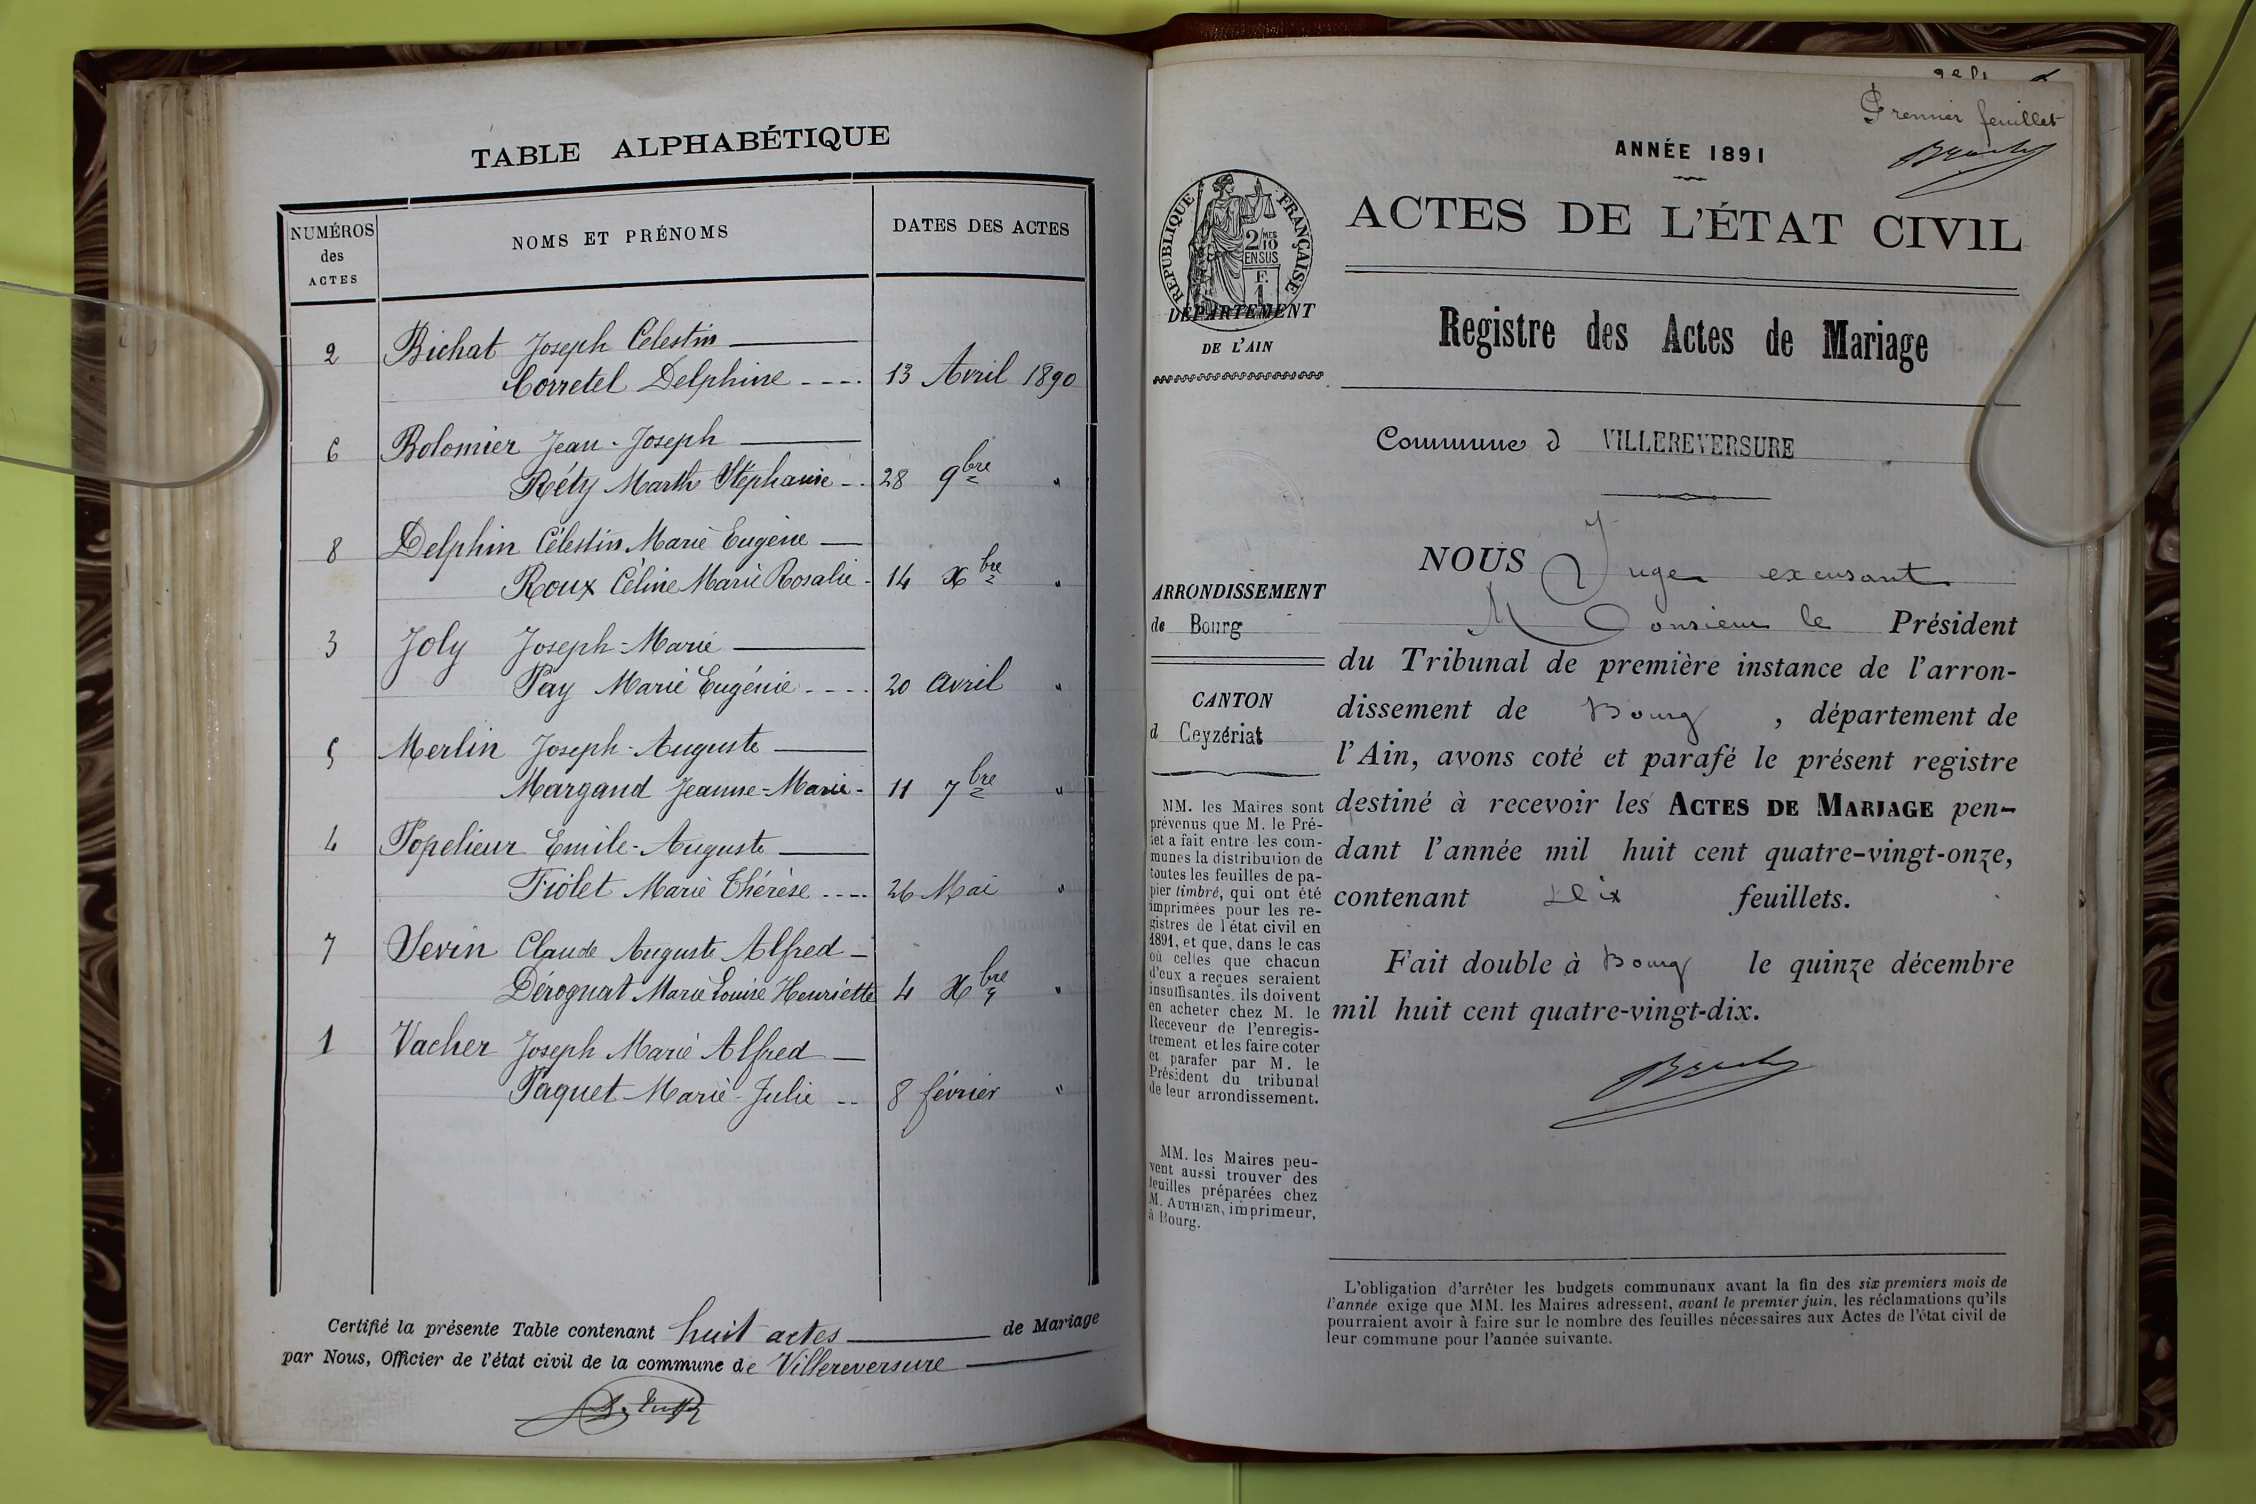 TABLE ALPHABÉTIQUE
NUMÉROS des ACTES
NOMS ET PRÉNOMS
DATES DES ACTES
2 Bichat Joseph Célestin
Corretel Delphine 13 Avril 1890
6 Bolomier Jean-Joseph
Réty Marth Stéphanie 28 9bre "
8 Delphin Célestin Marie Eugène
Roux Céline Marie Rosalie 14 Xbre "
3 Joly Joseph-Marie
Pay Marie Eugénie 20 avril "
5 Merlin Joseph-Auguste
Margand Jeanne-Marie 11 7bre "
4 Popelieur Emile-Auguste
Fiolet Marie Thérèse 26 Mai "
7 Sevin Claude Auguste Alfred
Dérognat Marie Louise Henriette 4 Xbre "
1 Vacher Joseph Marie Alfred
Paquet Marie-Julie 8 février "
Certifié la présente Table contenant huit actes de Mariage
par Nous, Officier de l'état civil de la commune de Villereversure
Premier feuillet
ANNÉE 1891
ACTES DE L'ÉTAT CIVIL
RÉPUBLIQUE FRANÇAISE
2/10 MES
EN SUS
F.
1
DÉPARTEMENT
DE L'AIN
Registre des Actes de Mariage
Commune d VILLEREVERSURE
ARRONDISSEMENT
de Bourg
CANTON
d Ceyzériat
MM. les Maires sont
prévenus que M. le Pré-
fet a fait entre les com-
munes la distribution de
toutes les feuilles de pa-
pier timbré, qui ont été
imprimées pour les re-
gistres de l'état civil en
1891, et que, dans le cas
où celles que chacun
d'eux a reçues seraient
insuffisantes, ils doivent
en acheter chez M. le
Receveur de l'enregis-
trement et les faire coter
et parafer par M. le
Président du tribunal
de leur arrondissement.
MM. les Maires peu-
vent aussi trouver des
feuilles préparées chez
M. AUTHIER, imprimeur,
à Bourg.
NOUS Juge excusant
Monsieur le Président
du Tribunal de première instance de l'arron-
dissement de Bourg, département de
l'Ain, avons coté et parafé le présent registre
destiné à recevoir les ACTES DE MARIAGE pen-
dant l'année mil huit cent quatre-vingt-onze,
contenant dix feuillets.
Fait double à Bourg le quinze décembre
mil huit cent quatre-vingt-dix.
L'obligation d'arrêter les budgets communaux avant la fin des six premiers mois de
l'année exige que MM. les Maires adressent, avant le premier juin, les réclamations qu'ils
pourraient avoir à faire sur le nombre des feuilles nécessaires aux Actes de l'état civil de
leur commune pour l'année suivante.